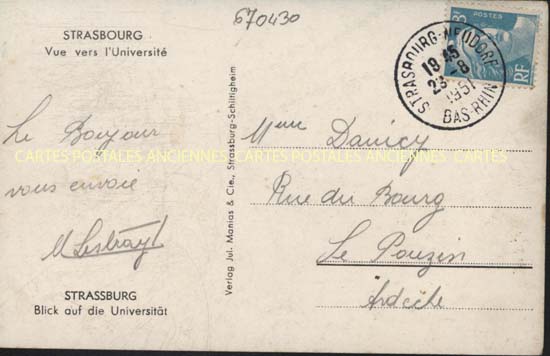 670430
STRASBOURG
Vue vers l'Université
Le Bonjour
vous envoie
STRASSBURG
Blick auf die Universität
Verlag Jul. Manias & Cie., Strassburg-Schiltigheim
CARTES POSTALES ANCIENNES CARTES POSTALES ANCIENNES CARTES
STRASBOURG-NEUDORF
19 45
23-8
1951
BAS-RHIN
POSTES
RF
Mme
Rue du Bourg
Le Pouzin
Ardèche